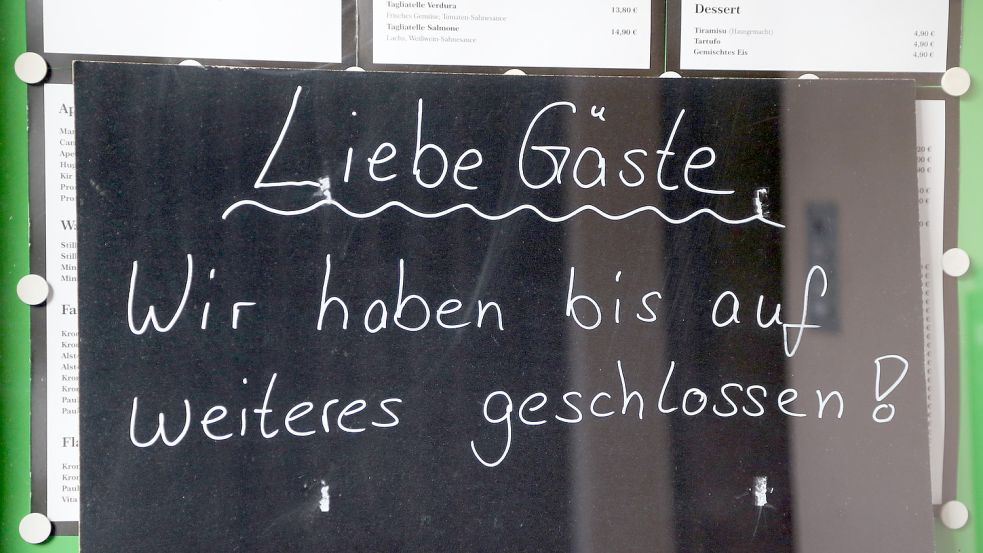 Tagliatelle Verdura 13,80 €
Frisches Gemüse, Tomaten-Sahnesauce
Tagliatelle Salmone 14,90 €
Lachs, Weißwein-Sahnesauce
Dessert
Tiramisu (Hausgemacht) 4,90 €
Tartufo 4,90 €
Gemischtes Eis 4,90 €
Liebe Gäste
Wir haben bis auf
weiteres geschlossen!